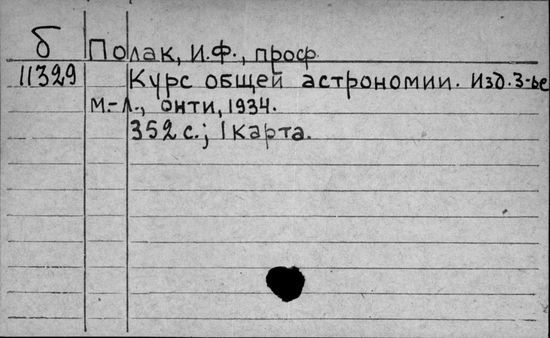 б
Полак, И.Ф., проф
11329
Курс общей астрономии. Изд. 3-ье
М.-Л., онти, 1934.
352 с.; 1 карта.